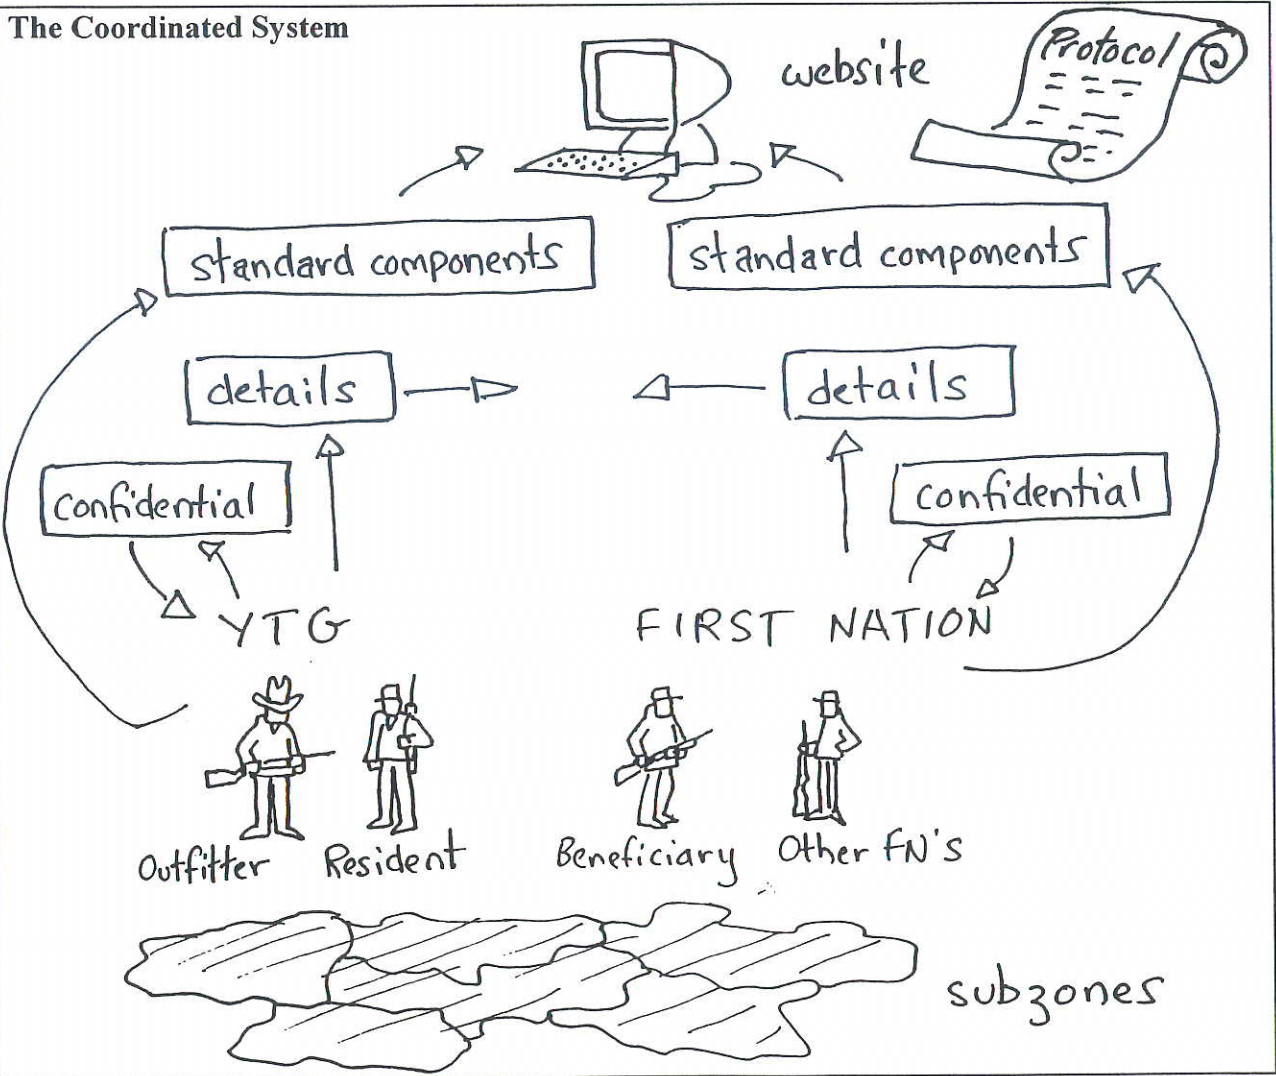 The Coordinated System
website
Protocol
standard components
standard components
details
details
confidential
confidential
YTG
FIRST NATION
Outfitter
Resident
Beneficiary
Other FN's
subzones